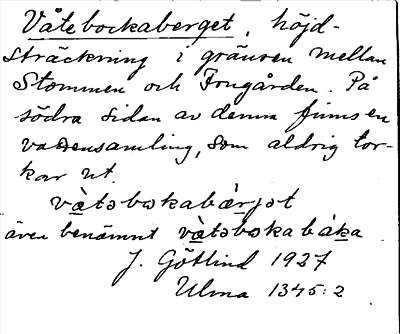 Våtebockaberget, höjd-
sträckning i gränsen mellan
Stommen och Frugården. På
södra sidan av denna finns en
vattensamling, som aldrig tor-
kar ut.
vàtəbokabærjət
även benämnt vàtəbokabàka
J. Götlind 1927
Ulma 1345:2